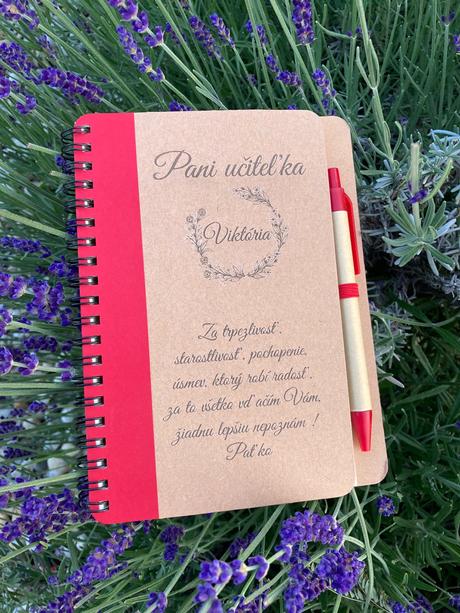 Pani učiteľka
Viktória
Za trpezlivosť,
starostlivosť, pochopenie,
úsmev, ktorý robí radosť,
za to všetko vďačím Vám,
žiadnu lepšiu nepoznám !
Paťko